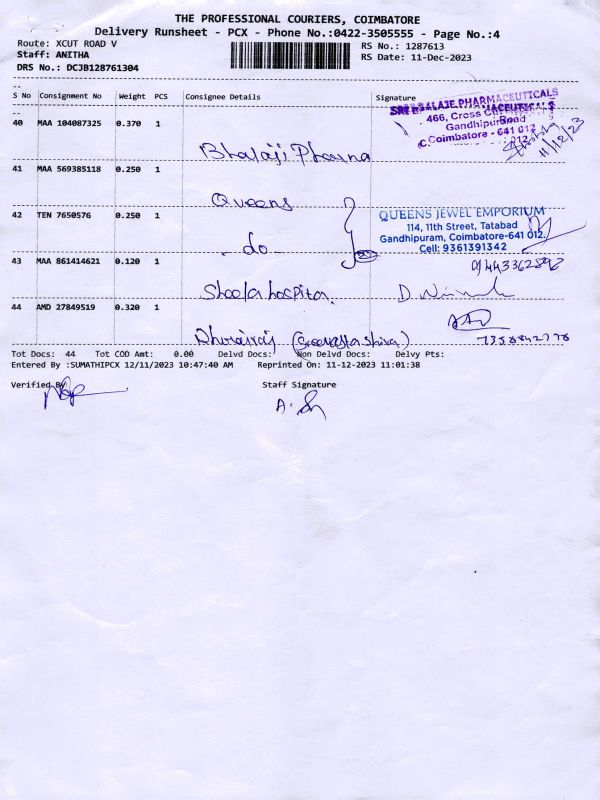 THE PROFESSIONAL COURIERS, COIMBATORE
Delivery Runsheet - PCX - Phone No.:0422-3505555 - Page No.:4
Route: XCUT ROAD V
RS No.: 1287613
Staff: ANITHA
RS Date: 11-Dec-2023
DRS No.: DCJB128761304
S No Consignment No Weight PCS Consignee Details Signature
SRI BALAJE PHARMACEUTICALS
466, Cross Cut Road
Gandhipuram
Coimbatore - 641 012
40 MAA 104087325 0.370 1
11/12/23
Bhalaji Pharma
41 MAA 569385118 0.250 1
Queens
42 TEN 7650576 0.250 1
QUEENS JEWEL EMPORIUM
114, 11th Street, Tatabad
Gandhipuram, Coimbatore-641 012.
Cell: 9361391342
- do -
43 MAA 861414621 0.120 1
Sheela hospital.
44 AMD 27849519 0.320 1
Dhurairaj
Tot Docs: 44 Tot COD Amt: 0.00 Delvd Docs: Non Delvd Docs: Delvy Pts:
Entered By :SUMATHIPCX 12/11/2023 10:47:40 AM Reprinted On: 11-12-2023 11:01:38
Verified By
Staff Signature